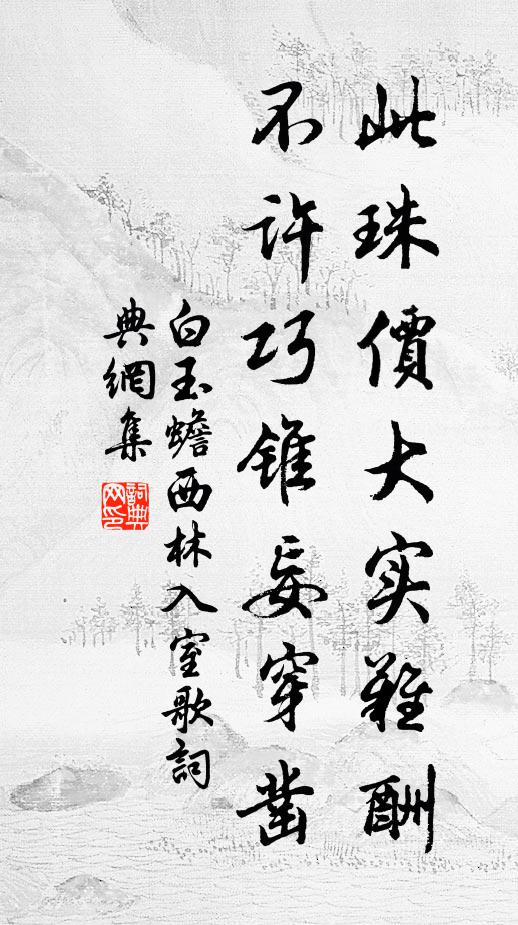 此珠價大实難酬
不许巧錐妄穿凿
白玉蟾西林入室歌詞
典網集
詞典
网印